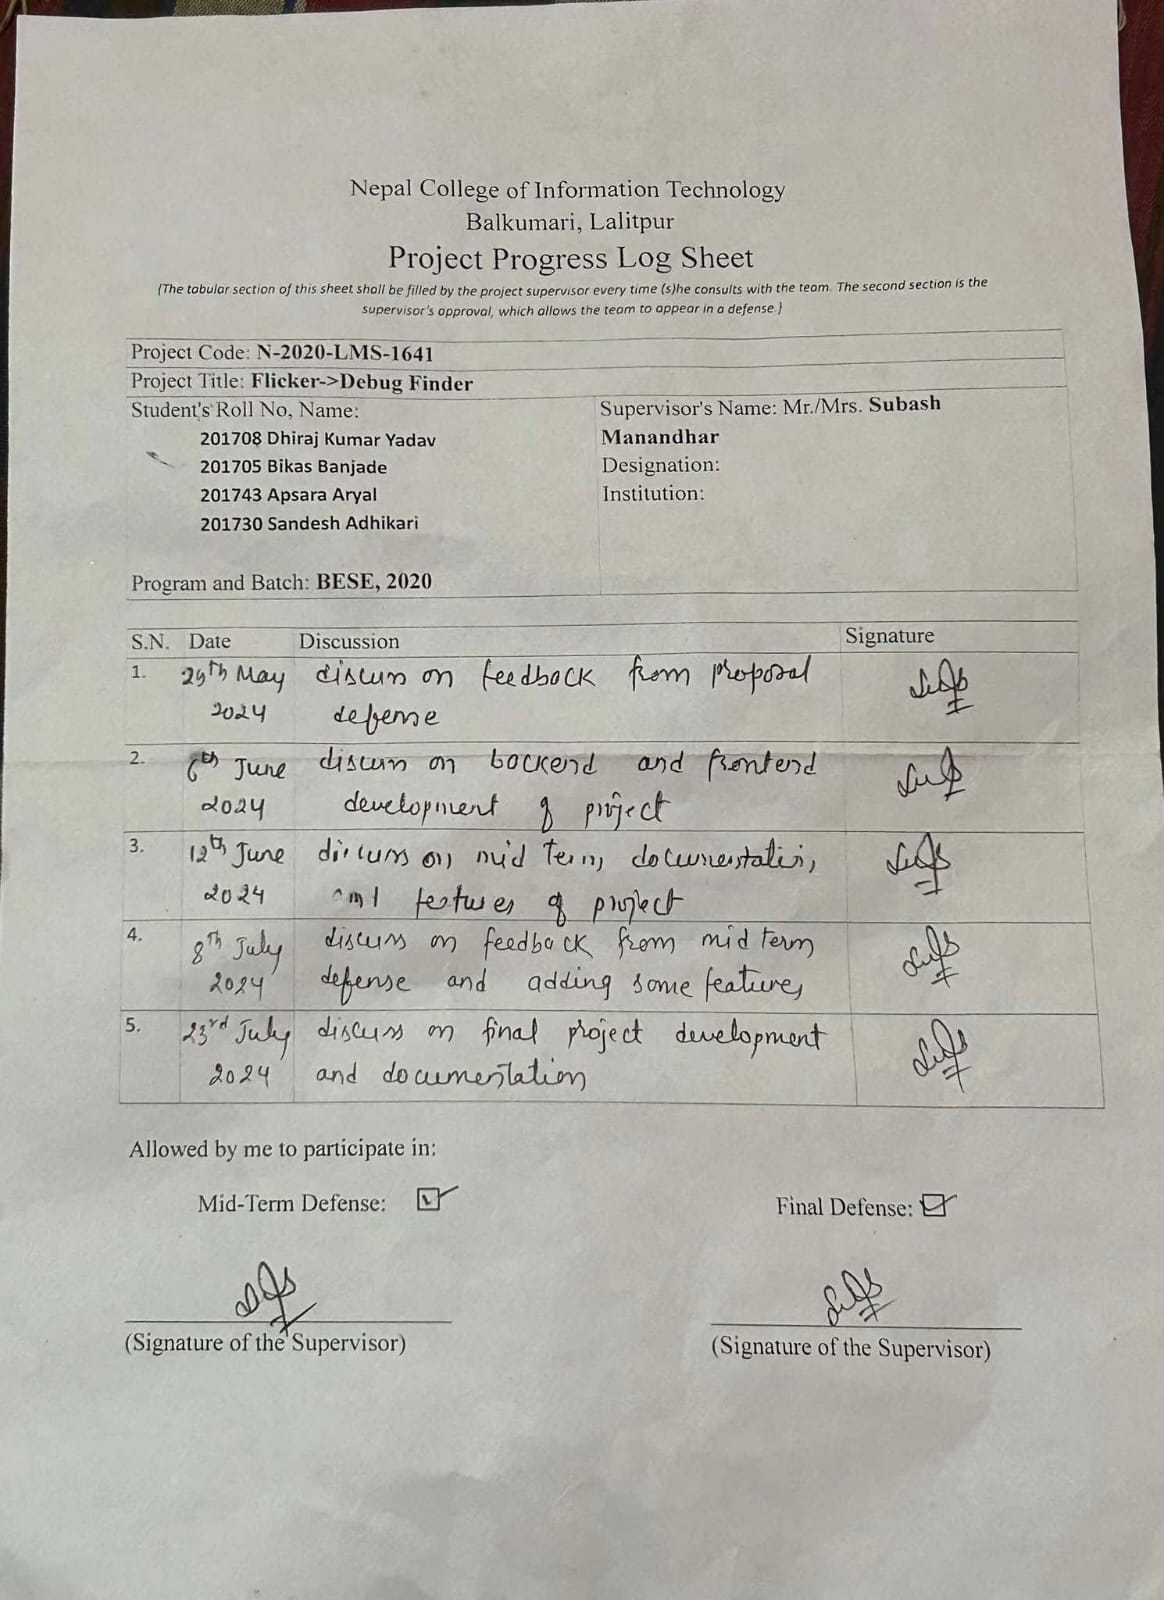 Nepal College of Information Technology
Balkumari, Lalitpur
Project Progress Log Sheet
(The tabular section of this sheet shall be filled by the project supervisor every time (s)he consults with the team. The second section is the
supervisor's approval, which allows the team to appear in a defense.)
Project Code: N-2020-LMS-1641
Project Title: Flicker->Debug Finder
Student's Roll No, Name:
201708 Dhiraj Kumar Yadav
201705 Bikas Banjade
201743 Apsara Aryal
201730 Sandesh Adhikari
Program and Batch: BESE, 2020
Supervisor's Name: Mr./Mrs. Subash
Manandhar
Designation:
Institution:
S.N. Date Discussion Signature
1. 29th May discuss on feedback from proposal
2024 defense
2. 6th June discuss on backend and frontend
2024 development of project
3. 12th June discuss on mid term documentation,
2024 features of project
4. 8th July discuss on feedback from mid term
2024 defense and adding some features
5. 23rd July discuss on final project development
2024 and documentation
Allowed by me to participate in:
Mid-Term Defense: Final Defense:
(Signature of the Supervisor) (Signature of the Supervisor)